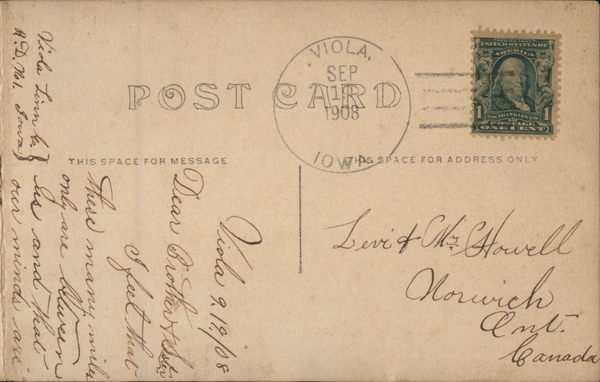 POST CARD
VIOLA,
SEP
1908
IOWA
UNITED STATES OF
AMERICA
1 1
FRANKLIN
POSTAGE
ONE CENT
THIS SPACE FOR MESSAGE
THIS SPACE FOR ADDRESS ONLY
Levi & Mrs. Howell
Norwich
Ont.
Canada
Viola 9, 19/08
Dear Brother & Sister
I feel that
these many mile
only are between
us and that
our minds are
Viola Linn Co
R.D. No 1. Iowa